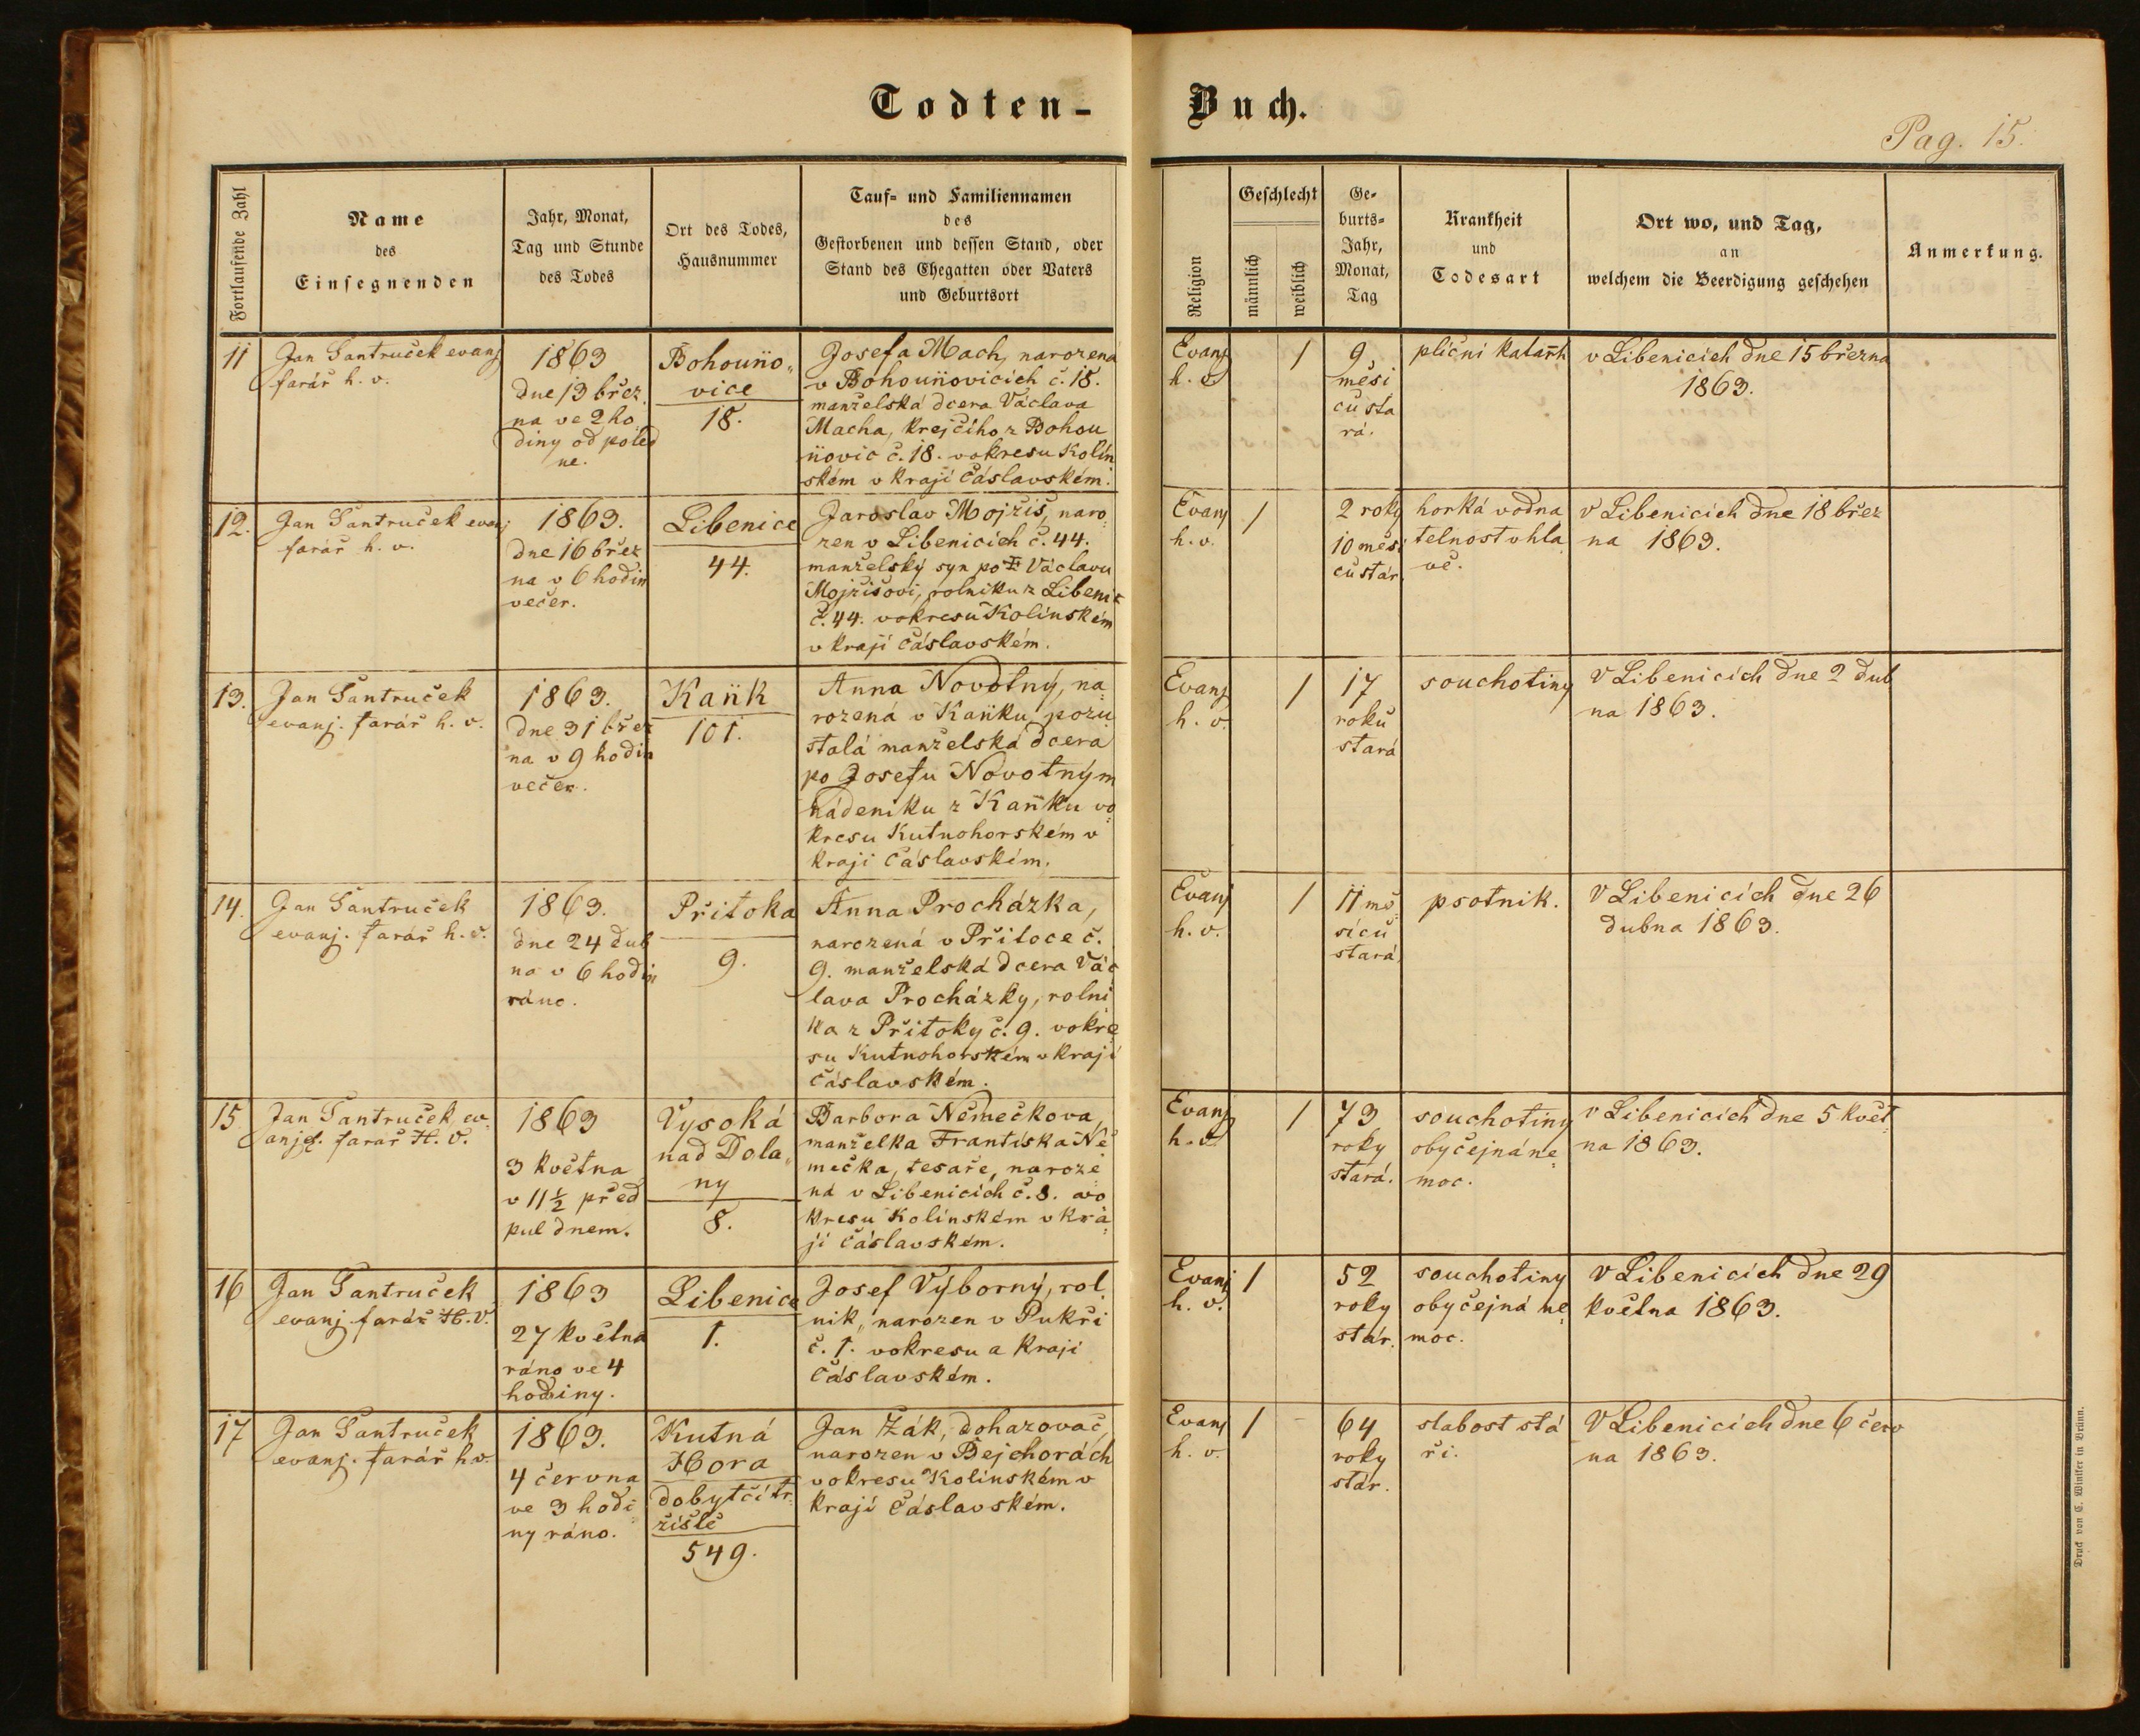 Todten-Buch.
Pag. 15.
Fortlaufende Zahl
Name
des
Einsegnenden
Jahr, Monat,
Tag und Stunde
des Todes
Ort des Todes,
Hausnummer
Tauf- und Familiennamen
des
Gestorbenen und dessen Stand, oder
Stand des Ehegatten oder Vaters
und Geburtsort
Religion
Geschlecht
männlich
weiblich
Ge-
burts-
Jahr,
Monat,
Tag
Krankheit
und
Todesart
Ort wo, und Tag,
an
welchem die Beerdigung geschehen
Anmerkung.
11
Jan Šantruček evanj
farář h. v.
1863
dne 13 břez
na ve 2 ho
diny od poled
ne.
Bohouňo„
vice
18.
Josefa Mach, narozena
v Bohouňovicích č. 18.
manželská dcera Václava
Macha, krejčího z Bohou
ňovic č. 18. v okresu Kolín
ském v kraji Čáslavském.
Evanj
h. v.
1
9
měsí
ců sta
rá.
plicní katarh
v Libenicích dne 15 března
1863.
12.
Jan Šantruček evanj
farář h. v.
1863.
dne 16 břez
na v 6 hodin
večer.
Libenice
44.
Jaroslav Mojžíš, naro
zen v Libenicích č. 44.
manželský syn po † Václavu
Mojžíšovi, rolníku z Libenic
č. 44. v okresu Kolínském
v kraji Čáslavském.
Evanj
h. v.
1
2 roky
10 měsí
ců stár
horká vodna
telnost v hla
vě.
v Libenicích dne 18 břez
na 1863.
13.
Jan Šantruček
evanj. farář h. v.
1863.
dne 31 břez
na v 9 hodin
večer.
Kaňk
101.
Anna Novotný, na
rozená v Kaňku, pozu
stalá manželská dcera
po Josefu Novotným
nádeníku z Kaňku vo
kresu Kutnohorském v
kraji Čáslavském.
Evanj
h. v.
1
17
roků
stará
souchotiny
V Libenicích dne 2 dub
na 1863.
14.
Jan Šantruček
evanj. farář h. v.
1863.
dne 24 dub
na v 6 hodin
ráno.
Přitoka
9.
Anna Procházka,
narozená v Přitoce č.
9. manželská dcera Vác
lava Procházky, rolní
ka z Přitoky č. 9. v okre
su Kutnohorském v kraji
Čáslavském.
Evanj
h. v.
1
11 mě
síců
stará
psotník.
V Libenicích dne 26
dubna 1863.
15
Jan Šantruček ev
anje. farář H. V.
1863
3 května
v 11½ před
pul dnem.
Vysoká
nad Dola„
ny
8.
Barbora Němečkova,
manželka Františka Ně
mečka, tesaře, naroze
ná v Libenicích č. 8. vo
kresu Kolínském v kra
ji Čáslavském.
Evanj
h. v.
1
73
roky
stará.
souchotiny
obyčejná ne
moc.
v Libenicích dne 5 květ
na 1863.
16
Jan Šantruček
evanj farář H. V.
1863
27 května
ráno ve 4
hodiny.
Libenice
1.
Josef Výborný, rol
ník, narozen v Pukři
č. 1. v okresu a kraji
Čáslavském.
Evanj
h. v.
1
52
roky
stár.
souchotiny
obyčejná ne
moc.
V Libenicích dne 29
května 1863.
17
Jan Šantruček
evanj. farář h v.
1863.
4 června
ve 3 hodi
ny ráno.
Kutná
Hora
dobytčí tr
žiště
549.
Jan Žák, dohazovač,
narozen v Bejchorách
v okresu Kolínském v
kraji Čáslavském.
Evanj
h. v.
1
64
roky
stár.
slabost stá
ří.
V Libenicích dne 6 červ
na 1863.
Druck von C. Winiker in Brünn.